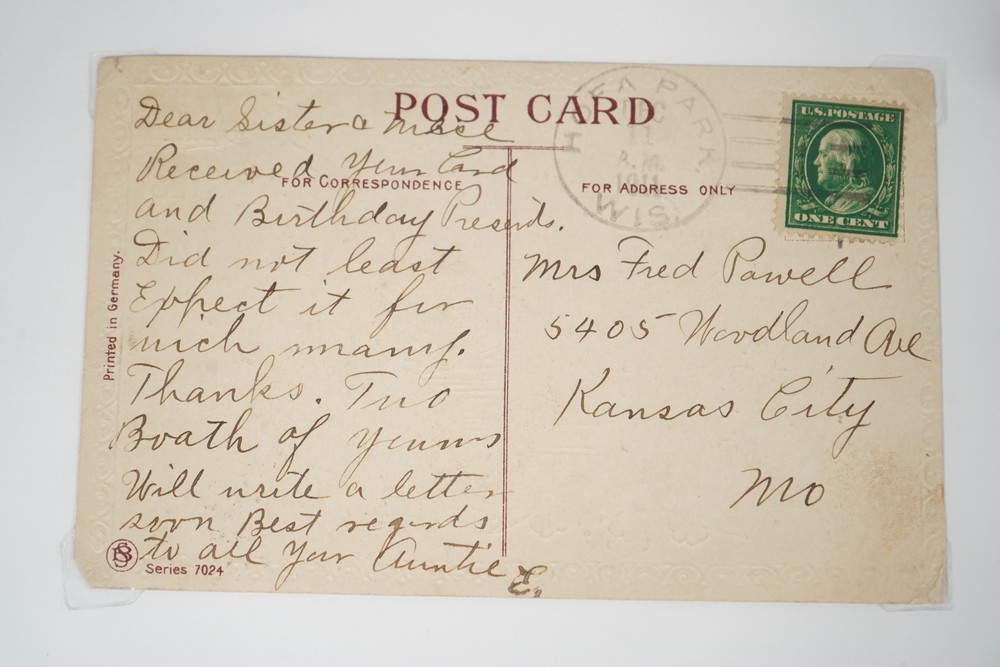 POST CARD
FOR CORRESPONDENCE
FOR ADDRESS ONLY
Dear Sister &
Received Your Card
and Birthday Presents.
Did not least
Expect it for
wich many.
Thanks. Two
Boath of youns
Will write a letter
soon Best regards
to all your Auntie E.
Mrs Fred Powell
5405 Woodland Ave
Kansas City
Mo
PARK.
11
A.M.
1911
WIS.
U.S. POSTAGE
ONE CENT
Printed in Germany.
Series 7024